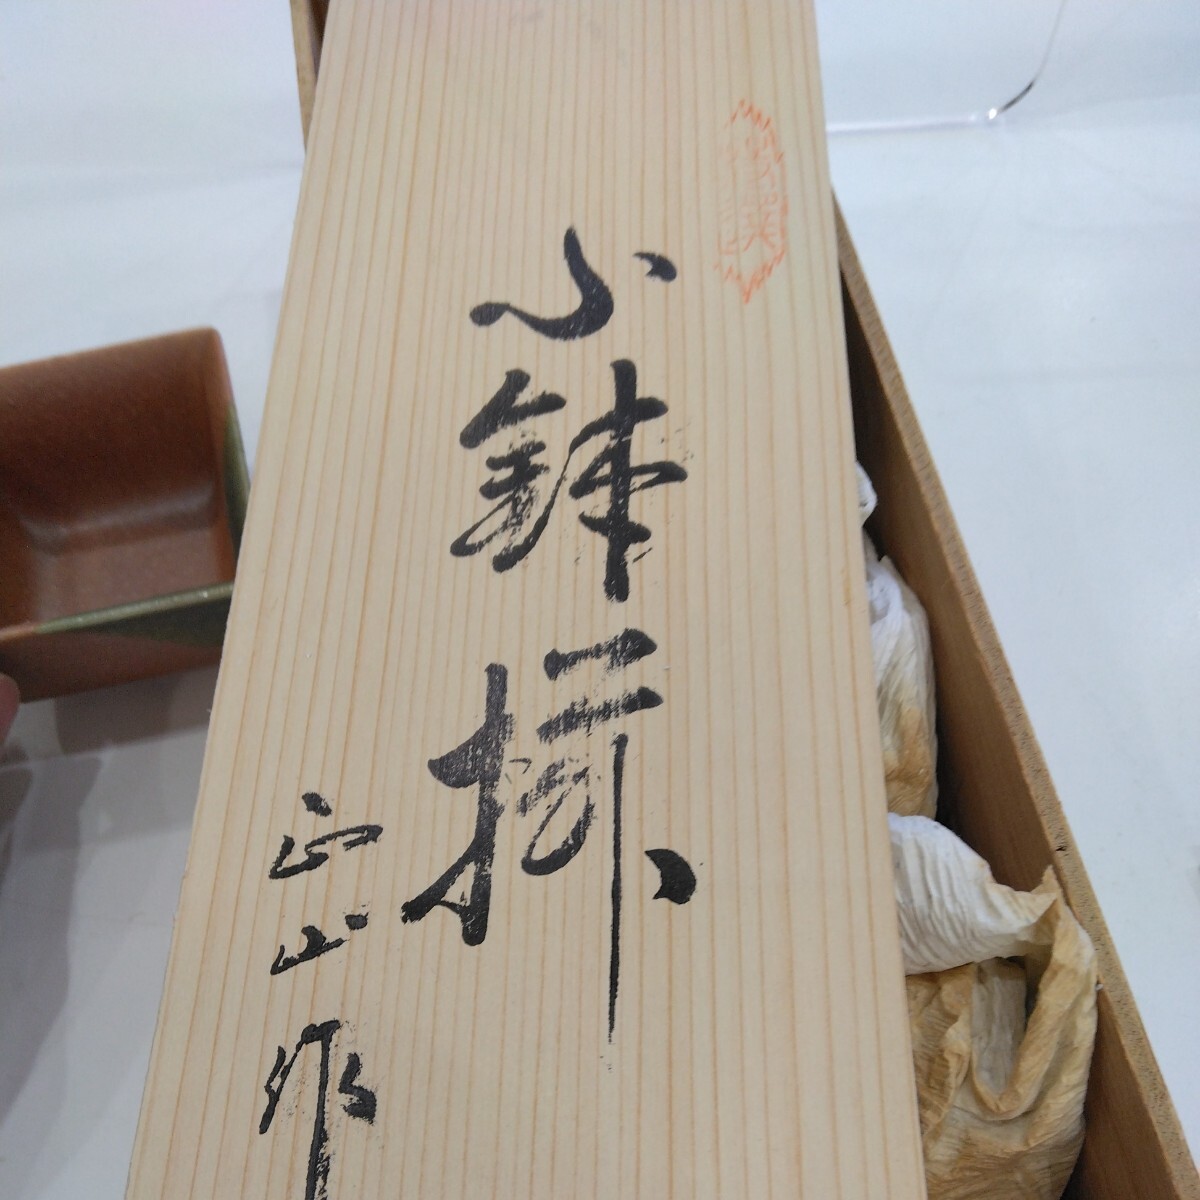 小鉢揃
正山作